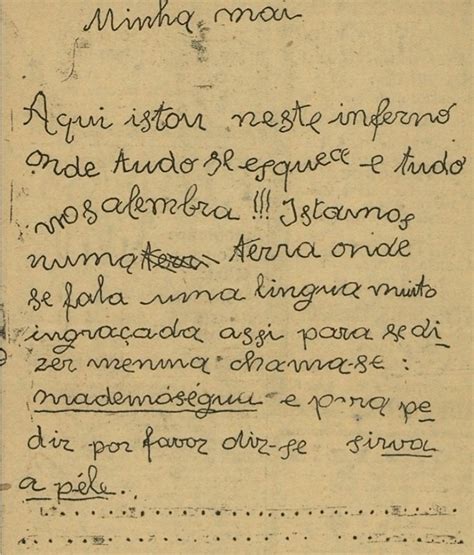 Minha mai
Aqui istou neste inferno
onde tudo se esquece e tudo
nos alembra!!! Istamos
numa terra onde
se fala uma lingua muito
ingraçada assi para se di
zer menina chama-se:
mademoségua e para pe
dir por favor diz-se sirva
a péle..